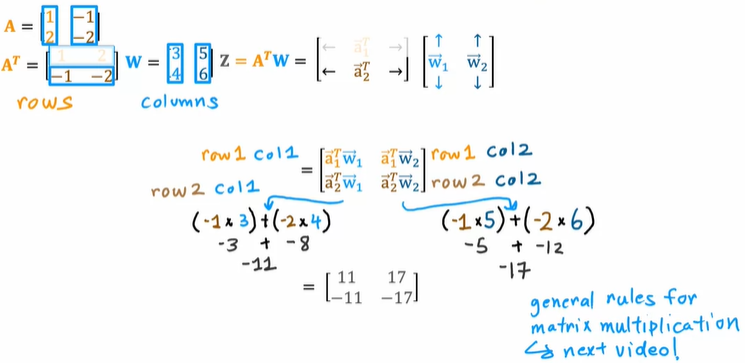 A = [1 -1
2 -2]
Aᵀ = [1 2
-1 -2] W = [3 5
4 6] Z = AᵀW = [← a⃗₁ᵀ →
← a⃗₂ᵀ →] [↑ ↑
w⃗₁ w⃗₂
↓ ↓]
rows columns
row1 col1 = [a⃗₁ᵀw⃗₁ a⃗₁ᵀw⃗₂] row1 col2
row2 col1 [a⃗₂ᵀw⃗₁ a⃗₂ᵀw⃗₂] row2 col2
(-1×3)+(-2×4) (-1×5)+(-2×6)
-3 + -8 -5 + -12
-11 -17
= [11 17
-11 -17]
general rules for
matrix multiplication
↳ next video!